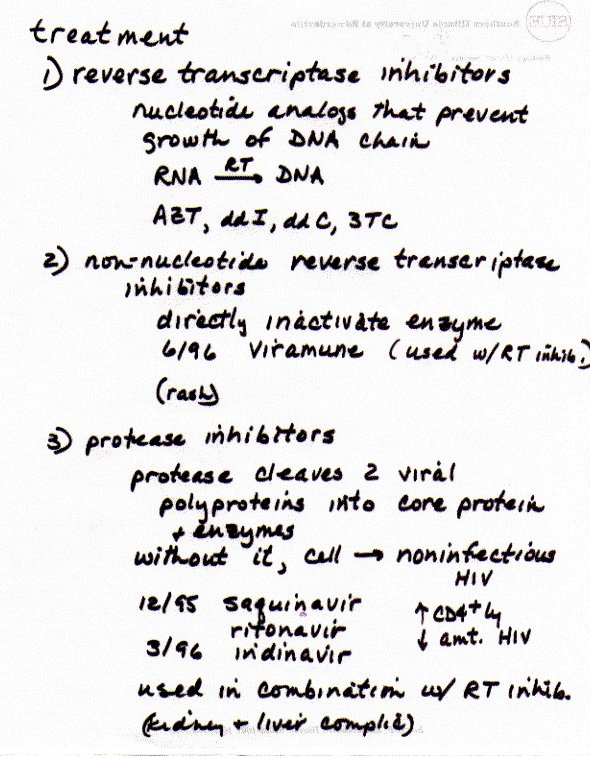 treatment
1) reverse transcriptase inhibitors
nucleotide analogs that prevent
growth of DNA chain
RNA RT→ DNA
AZT, ddI, ddC, 3TC
2) non-nucleotide reverse transcriptase
inhibitors
directly inactivate enzyme
6/96 Viramune (used w/RT inhib.)
(rash)
3) protease inhibitors
protease cleaves 2 viral
polyproteins into core protein
+ enzymes
without it, cell → noninfectious
HIV
12/95 saquinavir ↑ CD4+ Ly
ritonavir ↓ amt. HIV
3/96 indinavir
used in combination w/ RT inhib.
(kidney + liver complic)